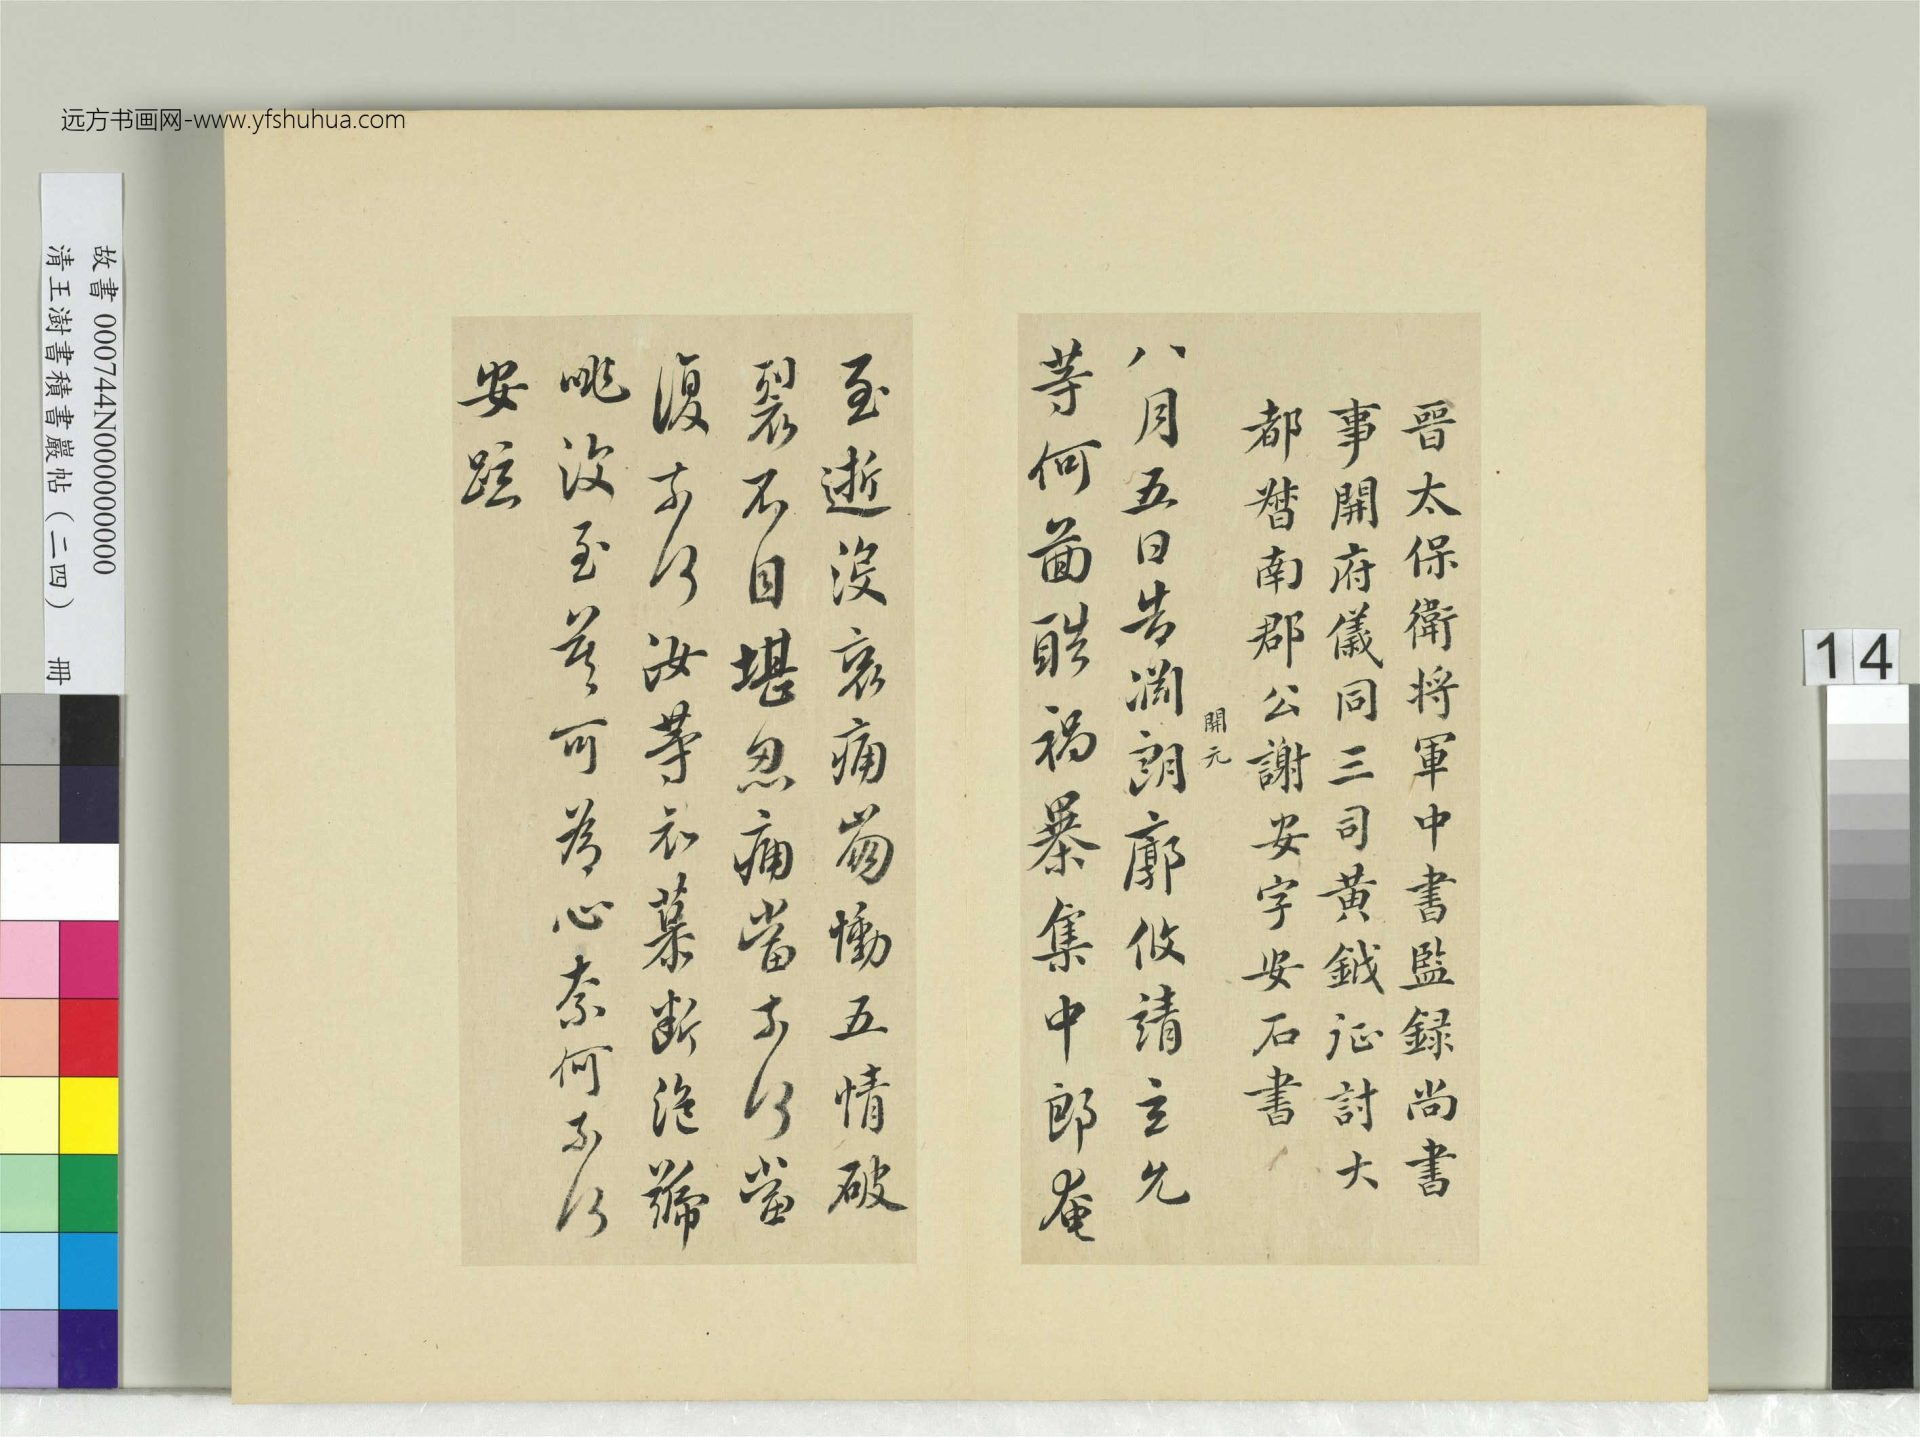 远方书画网-www.yfshuhua.com
故書 000744N000000000
清王澍書積書巖帖(二四) 冊
14
晋太保衛将軍中書監録尚書
事開府儀同三司黄鉞征討大
都督南郡公謝安字安石書
開元
八月五日告淵朗廓攸靖玄允
等何圖酷禍暴集中郎奄
至逝没哀痛崩慟五情破
裂不自堪忍痛當奈何當
復奈何汝等哀慕断絶號
咷深至豈可為心奈何奈何
安疏